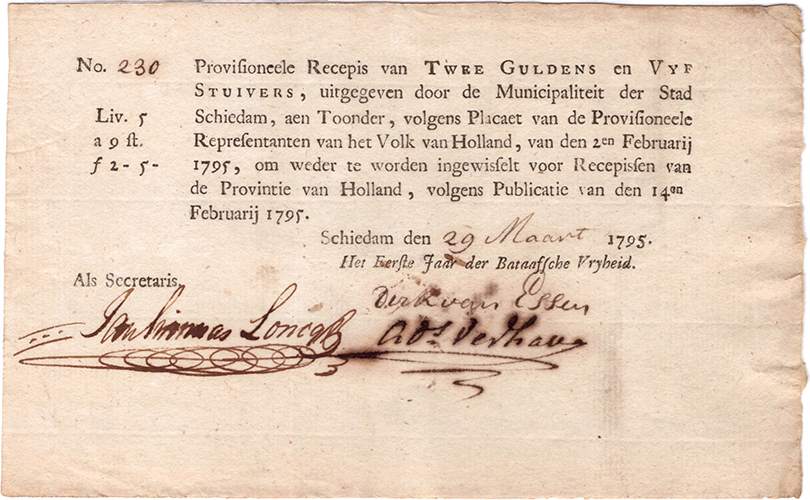 No. 230 Provisioneele Recepis van TWEE GULDENS en VYF
STUIVERS, uitgegeven door de Municipaliteit der Stad
Liv. 5 Schiedam, aen Toonder, volgens Placaet van de Provisioneele
a 9 st. Representanten van het Volk van Holland, van den 2en Februarij
f 2-5- 1795, om weder te worden ingewisselt voor Recepissen van
de Provintie van Holland, volgens Publicatie van den 14en
Februarij 1795.
Schiedam den 29 Maart 1795.
Het Eerste Jaar der Bataafsche Vryheid.
Als Secretaris
Dirk van Essen